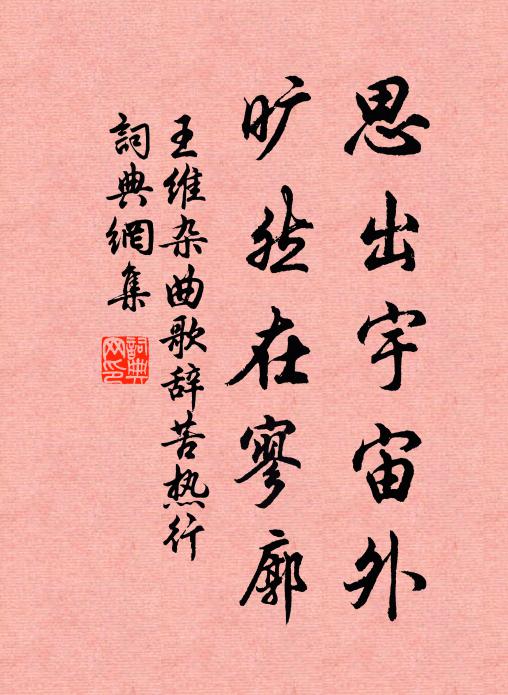 思出宇宙外
旷然在寥廓
王维杂曲歌辞苦热行
詞典網集
詞典網印